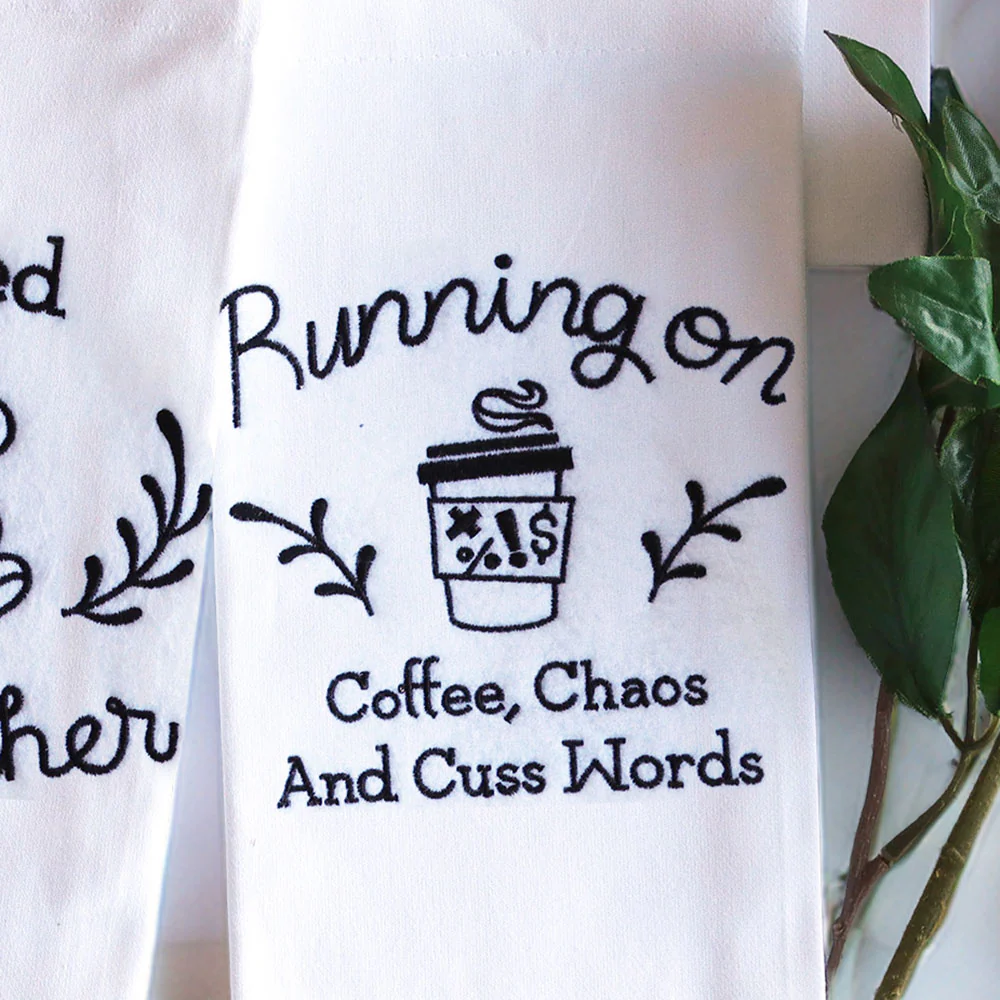 Running on
✖%!$
Coffee, Chaos
And Cuss Words
ed
her